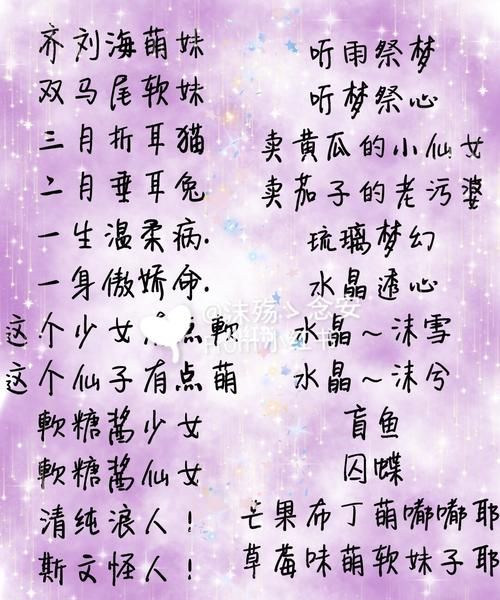 齐刘海萌妹
双马尾软妹
三月折耳猫
二月垂耳兔
一生温柔病.
一身傲娇命.
这个少女有点軟
这个仙子有点萌
軟糖酱少女
軟糖酱仙女
清纯浪人!
斯文怪人!
听雨祭梦
听梦祭心
卖黄瓜的小仙女
卖茄子的老污婆
琉璃梦幻
水晶透心
水晶~沫雪
水晶~沫兮
盲鱼
囚蝶
芒果布丁萌嘟嘟耶
草莓味萌软妹子耶
@沫殇ゝ念安
from小红书